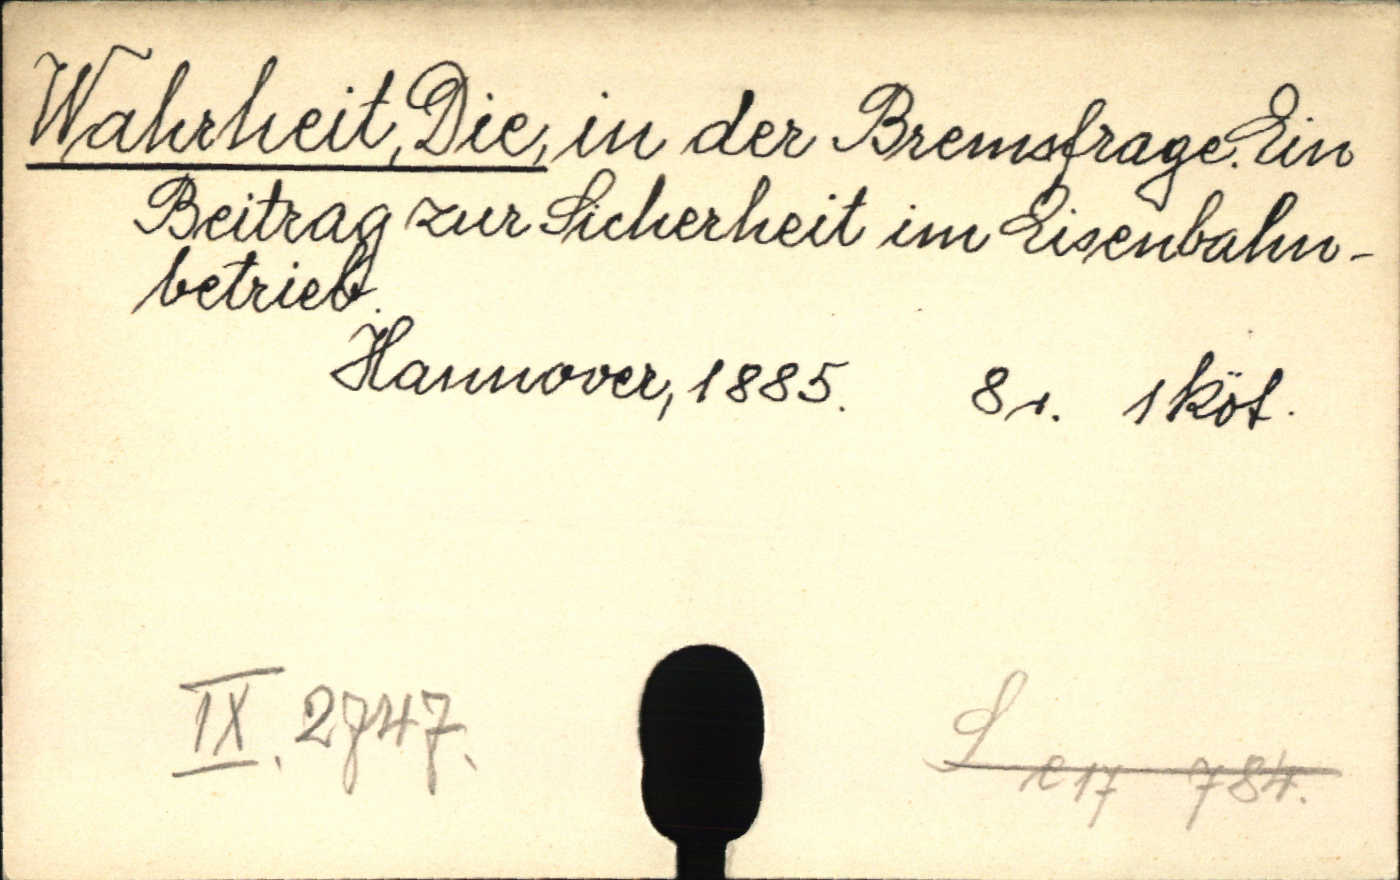 Wahrheit, Die, in der Bremsfrage. Ein
Beitrag zur Sicherheit im Eisenbahn-
betrieb.
Hannover, 1885. 8 r. 1 köt.
IX. 2747.
L e 17 784.